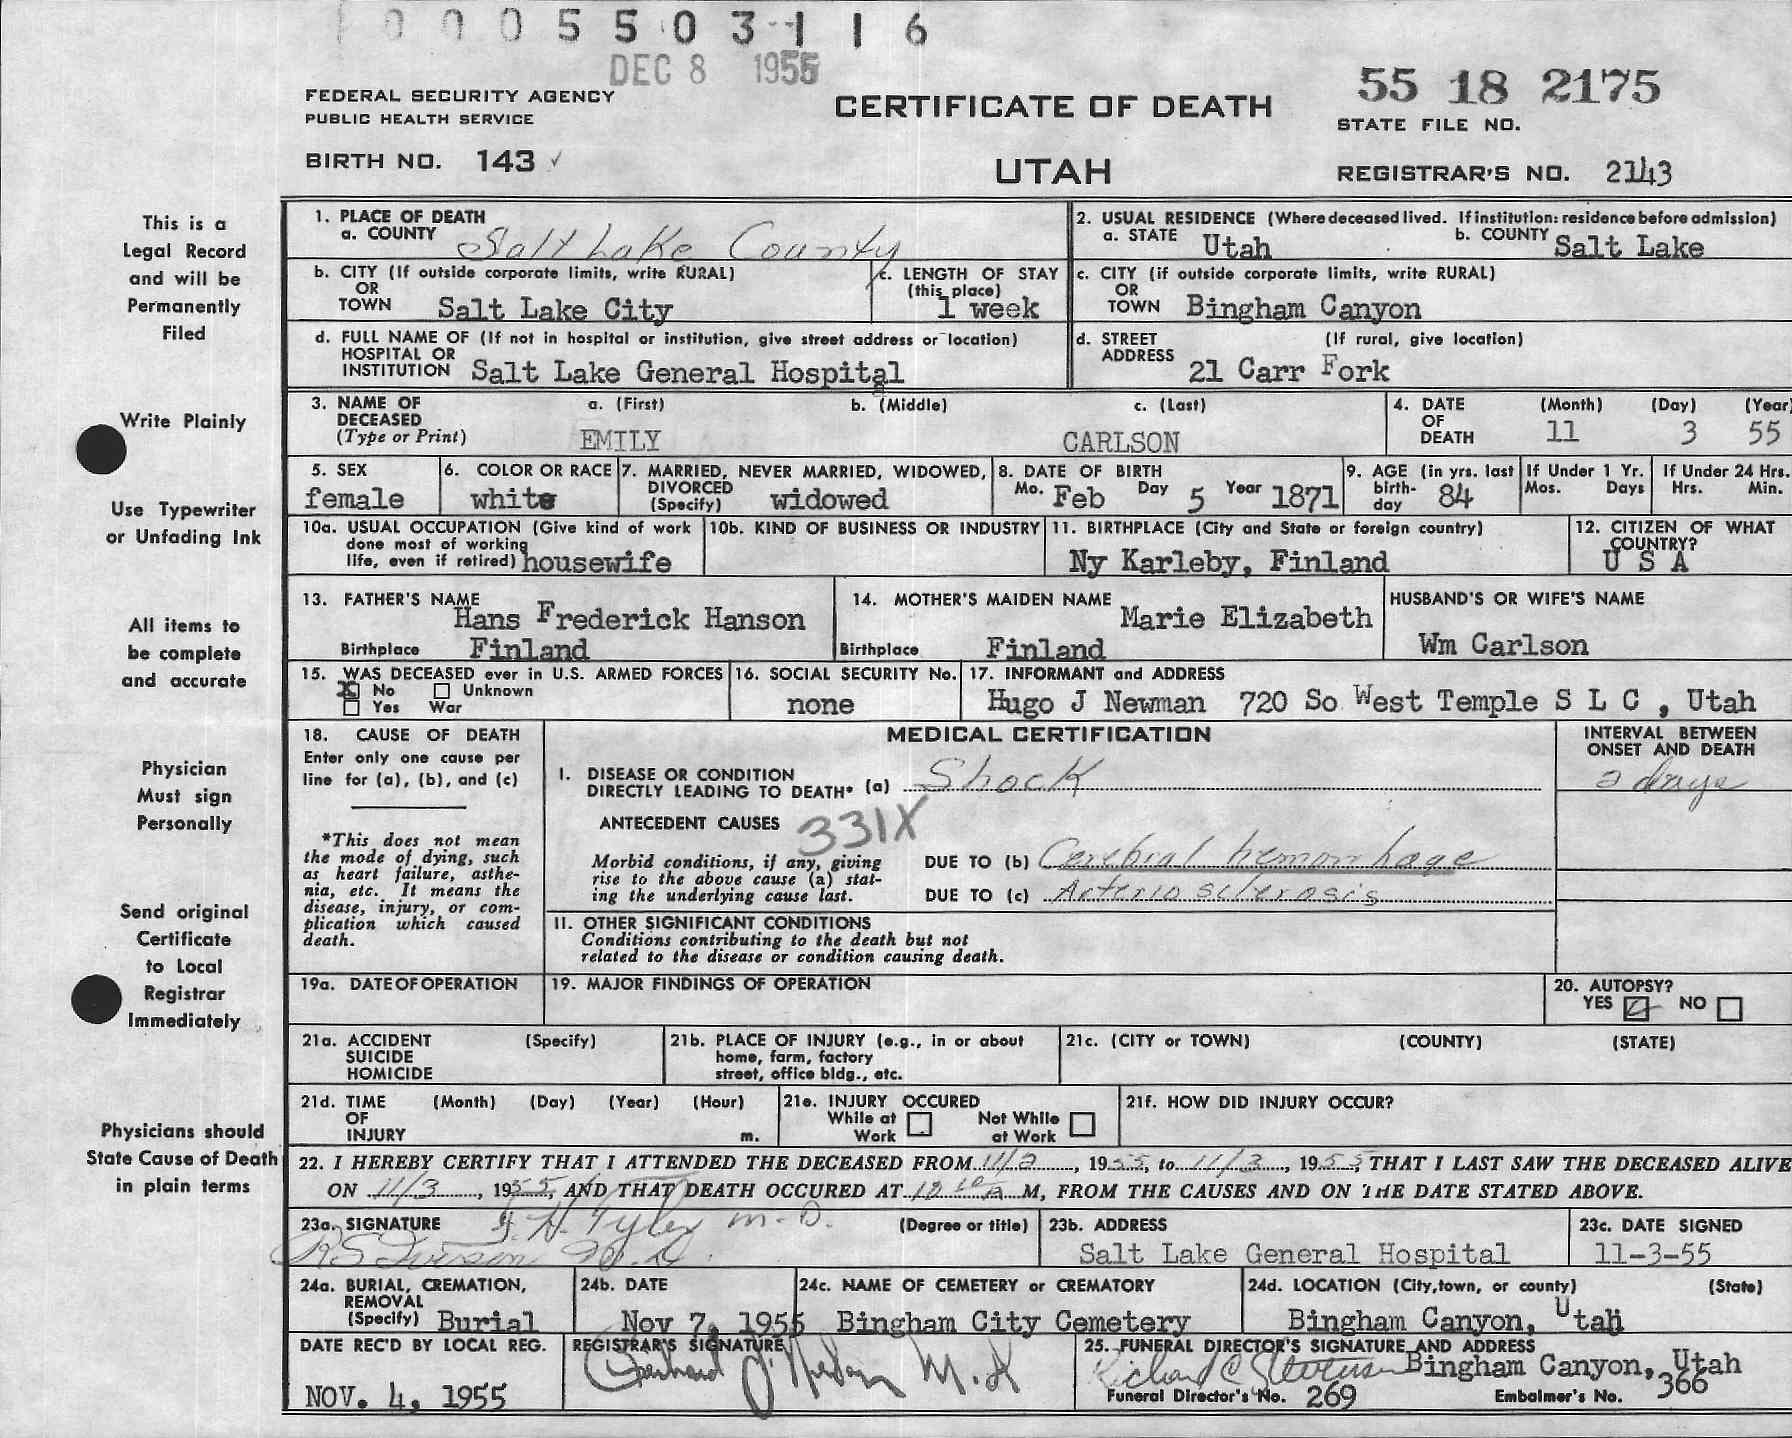 0 0 0 5 5 0 3 1 1 6
DEC 8 1955
FEDERAL SECURITY AGENCY
PUBLIC HEALTH SERVICE
BIRTH NO. 143 ✓
CERTIFICATE OF DEATH
UTAH
55 18 2175
STATE FILE NO.
REGISTRAR'S NO. 2143
This is a
Legal Record
and will be
Permanently
Filed
Write Plainly
Use Typewriter
or Unfading Ink
All items to
be complete
and accurate
Physician
Must sign
Personally
Send original
Certificate
to Local
Registrar
Immediately
Physicians should
State Cause of Death
in plain terms
1. PLACE OF DEATH
a. COUNTY Salt Lake County
2. USUAL RESIDENCE (Where deceased lived. If institution: residence before admission)
a. STATE Utah b. COUNTY Salt Lake
b. CITY (If outside corporate limits, write RURAL)
OR
TOWN Salt Lake City
c. LENGTH OF STAY
(this place)
1 week
c. CITY (if outside corporate limits, write RURAL)
OR
TOWN Bingham Canyon
d. FULL NAME OF (If not in hospital or institution, give street address or location)
HOSPITAL OR
INSTITUTION Salt Lake General Hospital
d. STREET (If rural, give location)
ADDRESS
21 Carr Fork
3. NAME OF DECEASED (Type or Print)
a. (First) b. (Middle) c. (Last)
EMILY CARLSON
4. DATE OF DEATH
(Month) (Day) (Year)
11 3 55
5. SEX
female
6. COLOR OR RACE
white
7. MARRIED, NEVER MARRIED, WIDOWED,
DIVORCED
(Specify) widowed
8. DATE OF BIRTH
Mo. Feb Day 5 Year 1871
9. AGE (in yrs. last
birth-
day 84
If Under 1 Yr.
Mos. Days
If Under 24 Hrs.
Hrs. Min.
10a. USUAL OCCUPATION (Give kind of work
done most of working
life, even if retired) housewife
10b. KIND OF BUSINESS OR INDUSTRY
11. BIRTHPLACE (City and State or foreign country)
Ny Karleby, Finland
12. CITIZEN OF WHAT
COUNTRY?
U S A
13. FATHER'S NAME
Hans Frederick Hanson
Birthplace Finland
14. MOTHER'S MAIDEN NAME
Marie Elizabeth
Birthplace Finland
HUSBAND'S OR WIFE'S NAME
Wm Carlson
15. WAS DECEASED ever in U.S. ARMED FORCES
X No Unknown
Yes War
16. SOCIAL SECURITY No.
none
17. INFORMANT and ADDRESS
Hugo J Newman 720 So West Temple S L C , Utah
18. CAUSE OF DEATH
Enter only one cause per
line for (a), (b), and (c)
*This does not mean
the mode of dying, such
as heart failure, asthe-
nia, etc. It means the
disease, injury, or com-
plication which caused
death.
MEDICAL CERTIFICATION
INTERVAL BETWEEN
ONSET AND DEATH
I. DISEASE OR CONDITION
DIRECTLY LEADING TO DEATH* (a) Shock
2 days
ANTECEDENT CAUSES 331X
Morbid conditions, if any, giving
rise to the above cause (a) stat-
ing the underlying cause last.
DUE TO (b) Cerebral hemorrhage
DUE TO (c) Arteriosclerosis
II. OTHER SIGNIFICANT CONDITIONS
Conditions contributing to the death but not
related to the disease or condition causing death.
19a. DATE OF OPERATION
19. MAJOR FINDINGS OF OPERATION
20. AUTOPSY?
YES NO
21a. ACCIDENT (Specify)
SUICIDE
HOMICIDE
21b. PLACE OF INJURY (e.g., in or about
home, farm, factory
street, office bldg., etc.
21c. (CITY or TOWN) (COUNTY) (STATE)
21d. TIME (Month) (Day) (Year) (Hour)
OF
INJURY m.
21e. INJURY OCCURED
While at
Work
Not While
at Work
21f. HOW DID INJURY OCCUR?
22. I HEREBY CERTIFY THAT I ATTENDED THE DECEASED FROM 11/2, 1955, to 11/3, 1955, THAT I LAST SAW THE DECEASED ALIVE
ON 11/3, 1955, AND THAT DEATH OCCURED AT 12 10 A M, FROM THE CAUSES AND ON THE DATE STATED ABOVE.
23a. SIGNATURE (Degree or title)
Tyler M.D.
23b. ADDRESS
Salt Lake General Hospital
23c. DATE SIGNED
11-3-55
24a. BURIAL, CREMATION,
REMOVAL
(Specify) Burial
24b. DATE
Nov 7, 1955
24c. NAME OF CEMETERY or CREMATORY
Bingham City Cemetery
24d. LOCATION (City, town, or county) (State)
Bingham Canyon, Utah
DATE REC'D BY LOCAL REG.
NOV. 4, 1955
REGISTRAR'S SIGNATURE
25. FUNERAL DIRECTOR'S SIGNATURE AND ADDRESS
Richard C Bingham Canyon, Utah
Funeral Director's No. 269 Embalmer's No. 366